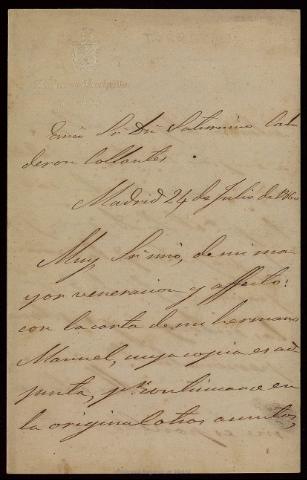 Excmo Sr Dn Saturnino Cal-
deron Collantes
Madrid 24 de Julio de
Muy Sr. mio, de mi ma-
yor veneracion y affecto:
con la carta de mi hermano
Manuel, cuya copia es ad-
junta, pr continuarse en
la original otros asuntos,